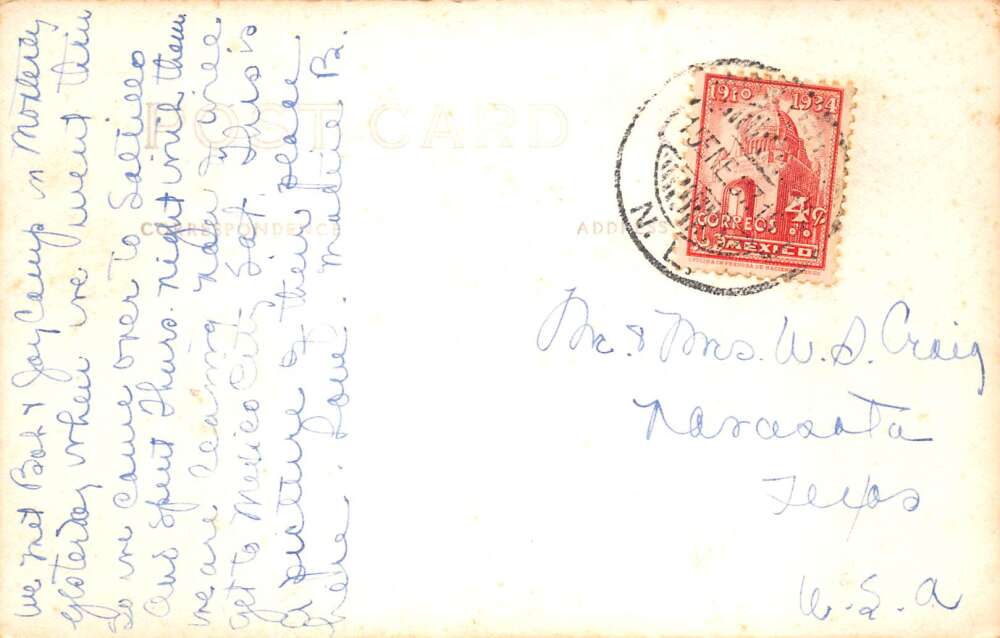 We met Bob & Joy Camp in Monterrey
yesterday when we went thru
so we came over to Saltillo
and spent Thurs. night with them
we are leaving now &
get to Mexico City Sat. This is
a picture of their place
here. Love. Madie B.
POST-CARD
CORRESPONDENCE
ADDRESS
1910 1934
4¢
CORREOS
MEXICO
N. L.
Mr. & Mrs. W. S. Craig
Navasota
Texas
U.S.A